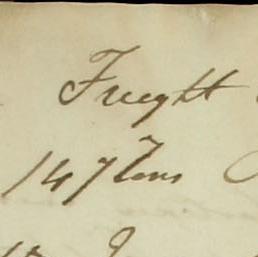 Freight
147 Tons